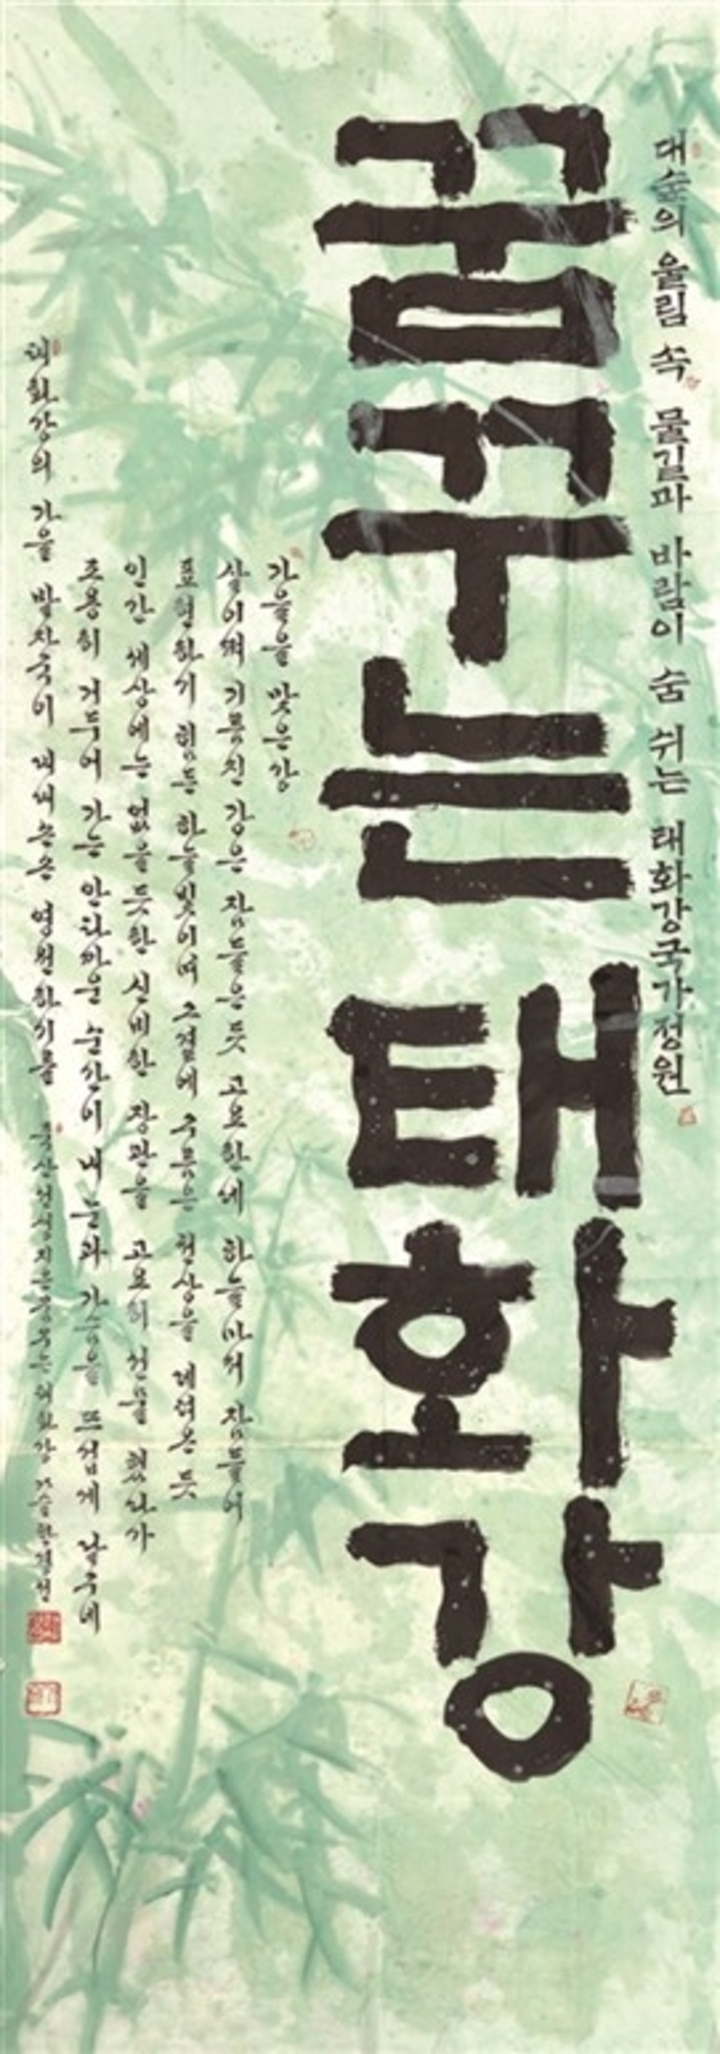 대숲의 울림 속 물길과 바람이 숨 쉬는 태화강국가정원
꿈꾸는 태화강
가을을 맞은 강
살이쪄 기름진 강은 잠들은 듯 고요한데 하늘마저 잠들어
표현하기 힘든 하늘빛이며 그곁에 구름은 천상을 데려온 듯
인간 세상에는 없을 듯한 신비한 장관을 고요히 선물 했나가
조용히 거두어 가는 안타까운 순간이 내 눈과 가슴을 뜨겁게 달구네
태화강의 가을 발자국이 내내 영원하기를
꿈꾸는 태화강